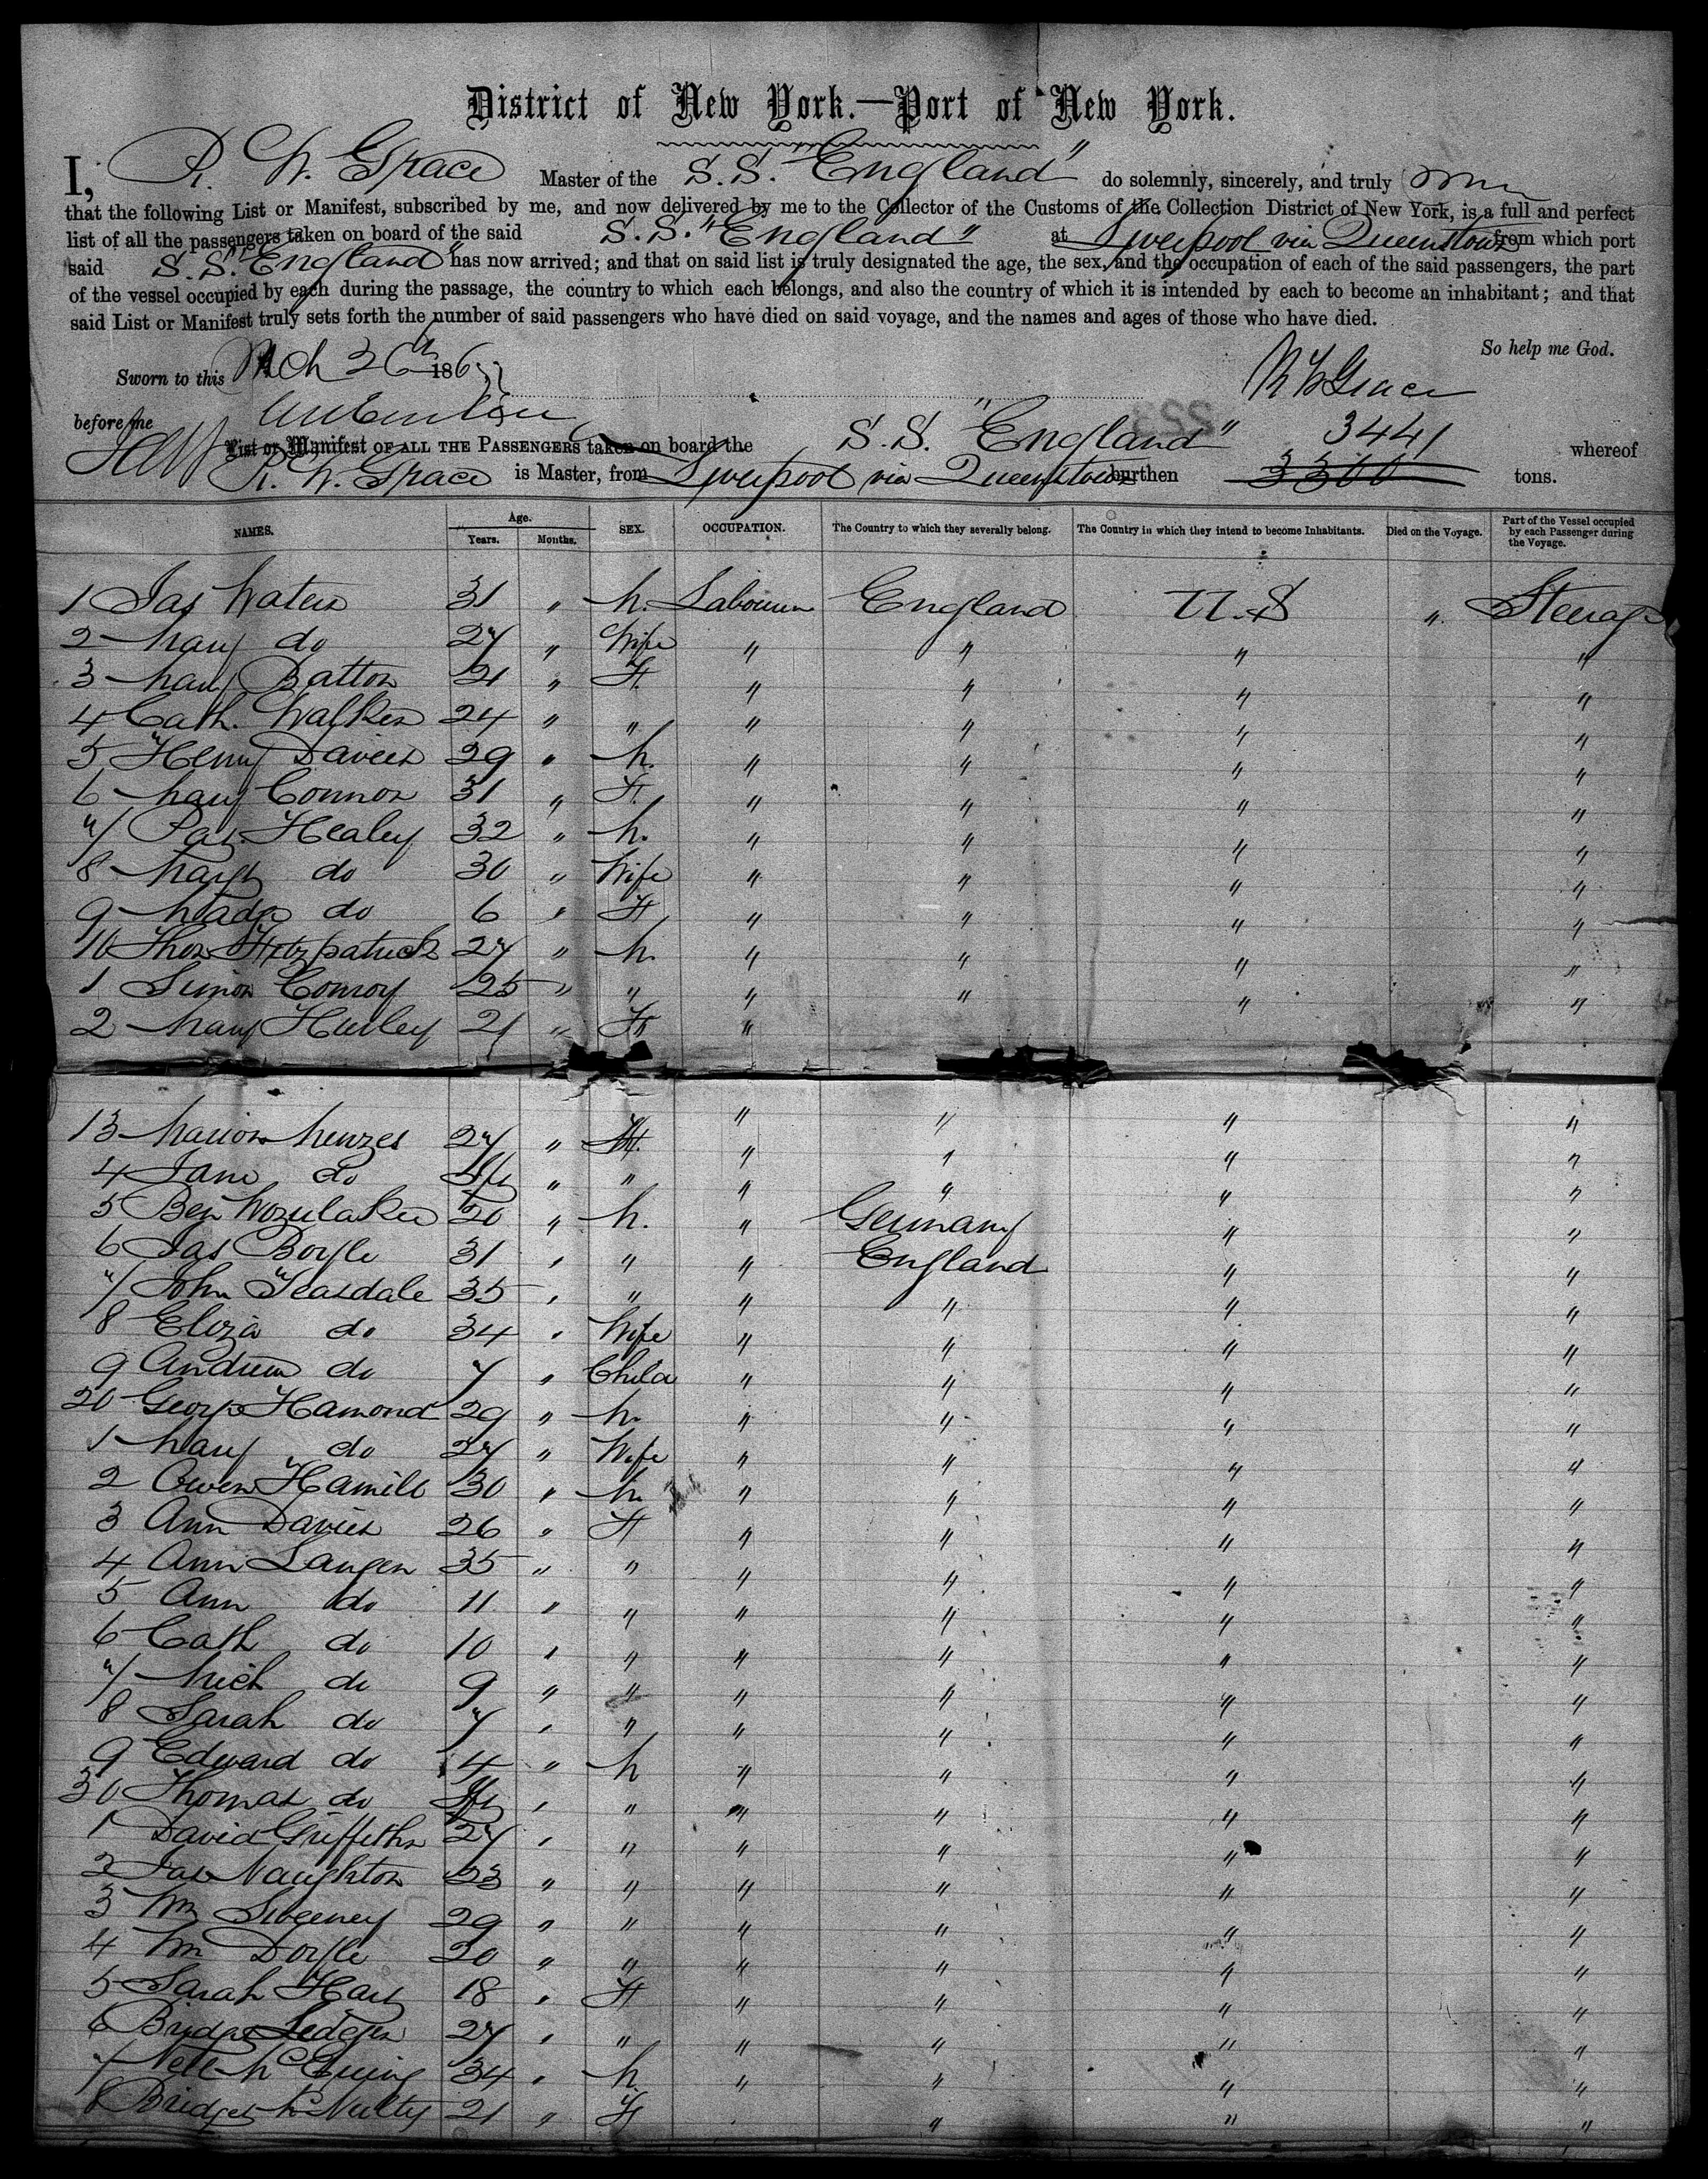 District of New York.—Port of New York.
I, R. W. Grace Master of the S.S. "England" do solemnly, sincerely, and truly
that the following List or Manifest, subscribed by me, and now delivered by me to the Collector of the Customs of the Collection District of New York, is a full and perfect
list of all the passengers taken on board of the said S.S. "England" at Liverpool via Queenstown from which port
said S.S. "England" has now arrived; and that on said list is truly designated the age, the sex, and the occupation of each of the said passengers, the part
of the vessel occupied by each during the passage, the country to which each belongs, and also the country of which it is intended by each to become an inhabitant; and that
said List or Manifest truly sets forth the number of said passengers who have died on said voyage, and the names and ages of those who have died.
So help me God.
Sworn to this Mch 26th 186 R W Grace
before me
List or Manifest OF ALL THE PASSENGERS taken on board the S.S. "England" 3441 whereof
R. W. Grace is Master, from Liverpool via Queenstown burthen 3300 tons.
NAMES. Age. Years. Months. SEX. OCCUPATION. The Country to which they severally belong. The Country in which they intend to become Inhabitants. Died on the Voyage. Part of the Vessel occupied by each Passenger during the Voyage.
1 Jas Waters 31 " M. Labourer England U.S " Steerage
2 Mary do 27 " Wife " " " "
3 Mary Batton 21 " F. " " " "
4 Cath. Walker 24 " " " " " "
5 Henry Davies 29 " M. " " " "
6 Mary Connor 31 " F. " " " "
7 Pat. Healey 32 " M. " " " "
8 Margt do 30 " Wife " " " "
9 Madge do 6 " F " " " "
10 Thos Fitzpatrick 27 " M. " " " "
1 Simon Conroy 25 " " " " " "
2 Mary Hurley 21 " F "
13 Marion Menzes 27 " F. " " " "
4 Jane do Inft " " " " " "
5 Ben 20 " M. " Germany " "
6 Jas Boyle 31 " " " England " "
7 John Teasdale 35 " " " " " "
8 Eliza do 34 " Wife " " " "
9 Andrew do 7 " Child " " " "
20 George Hamond 29 " M. " " " "
1 Mary do 27 " Wife " " " "
2 Owen Hamill 30 " M. " " " "
3 Ann Davies 26 " F " " " "
4 Ann Langen 35 " " " " " "
5 Ann do 11 " " " " " "
6 Cath do 10 " " " " " "
7 Mich do 9 " " " " " "
8 Sarah do 7 " " " " " "
9 Edward do 4 " M " " " "
30 Thomas do Inft " " " " " "
1 David Griffiths 27 " " " " " "
2 Jas Naughton 23 " " " " " "
3 Wm Sweeney 29 " " " " " "
4 Wm Doyle 20 " " " " " "
5 Sarah Hart 18 " F " " " "
6 Bridget Ledger 27 " " " " " "
7 Neil 34 " M. " " " "
8 Bridget McNulty 21 " F " " "